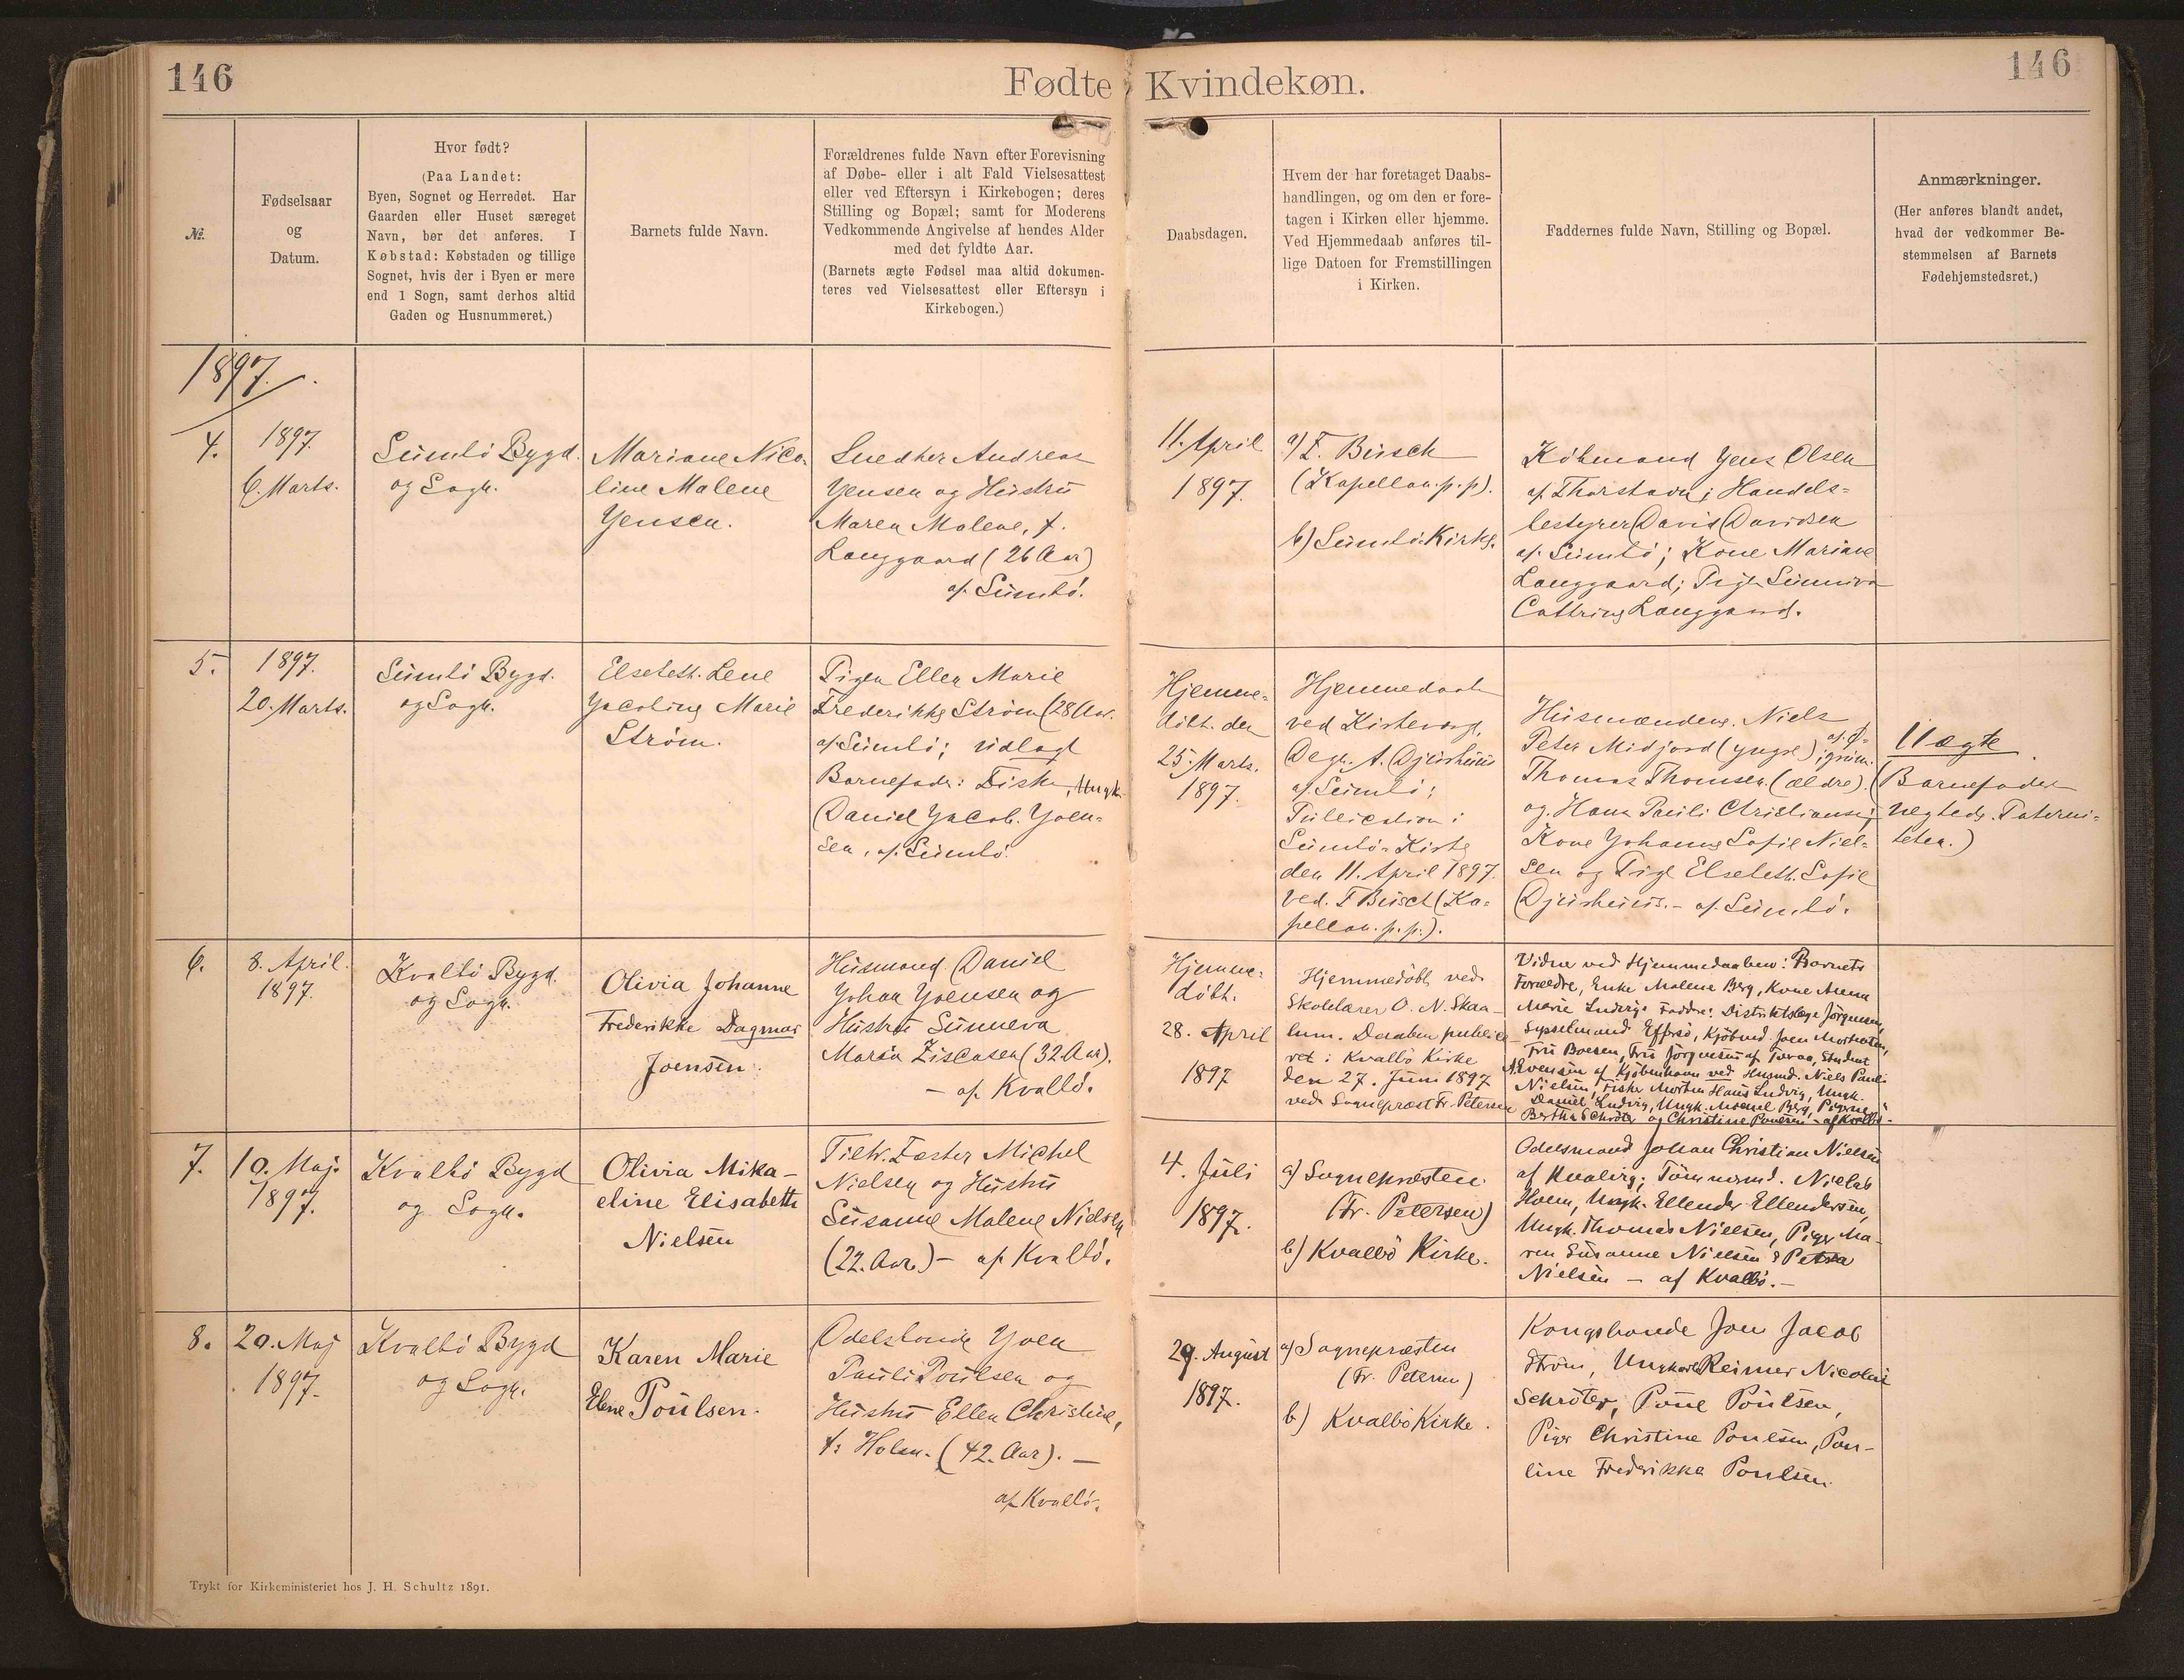 146
Fødte Kvindekøn.
146
№.
Fødselsaar
og
Datum.
Hvor født?
(Paa Landet:
Byen, Sognet og Herredet. Har
Gaarden eller Huset særeget
Navn, bør det anføres. I
Købstad: Købstaden og tillige
Sognet, hvis der i Byen er mere
end 1 Sogn, samt derhos altid
Gaden og Husnummeret.)
Barnets fulde Navn.
Forældrenes fulde Navn efter Forevisning
af Døbe- eller i alt Fald Vielsesattest
eller ved Eftersyn i Kirkebogen; deres
Stilling og Bopæl; samt for Moderens
Vedkommende Angivelse af hendes Alder
med det fyldte Aar.
(Barnets ægte Fødsel maa altid dokumen-
teres ved Vielsesattest eller Eftersyn i
Kirkebogen.)
Daabsdagen.
Hvem der har foretaget Daabs-
handlingen, og om den er fore-
tagen i Kirken eller hjemme.
Ved Hjemmedaab anføres til-
lige Datoen for Fremstillingen
i Kirken.
Faddernes fulde Navn, Stilling og Bopæl.
Anmærkninger.
(Her anføres blandt andet,
hvad der vedkommer Be-
stemmelsen af Barnets
Fødehjemstedsret.)
1897.
4.
1897.
6. Marts.
Sumbö Bygd.
og Sogn.
Mariane Nico-
line Malene
Jensen.
Snedker Andreas
Jensen og Hustru
Maren Malene, f.
Langgaard (26 Aar)
af Sumbö.
11. April
1897.
a) F. Busch
(Kapellan. p. p).
b) Sumbö Kirke.
Köbmand Jens Olsen
af Thorshavn; Handels-
bestyrer David Davidsen
af Sumbö; Kone Mariane
Langgaard; Pige Sunniva
Cathrine Langgaard.
5.
1897.
20. Marts.
Sumbö Bygd.
og Sogn.
Elsebeth Lene
Jacobine Marie
Ström.
Pigen Ellen Marie
Frederikke Ström (28 Aar.
af Sumbö; udlagt
Barnefader: Fisker, Ungk.
Daniel Jacob Joen-
sen, af Sumbö.
Hjemme-
döbt den
25. Marts.
1897.
Hjemmedaab
ved Kirkeværge,
Degn. A. Djurhuus
af Sumbö;
Publication i
Sumbö Kirke
den 11. April 1897.
ved F Busch (Ka-
pellan. p. p.).
Husmændene Niels
Peter Midjord (yngre) af Ö-
igrim.
Thomas Thomsen (ældre).
og Hans Pauli Christiansen;
Kone Johanne Sofie Niel-
sen og Pige Elsebeth Sofie
Djurhuus. - af Sumbö.
Uægte.
(Barnefader
negtede Paterni-
teten.)
6.
8. April.
1897.
Kvalbö Bygd.
og Sogn.
Olivia Johanne
Frederikke Dagmar
Joensen.
Husmand Daniel
Johan Joensen og
Hustru Sunneva
Maria Ziscasen (32 Aar).
- af Kvalbö.
Hjemme-
döbt.
28. April
1897
Hjemmedöbt ved
Skolelærer O. N. Skaa-
lum. Daaben publice-
ret i Kvalbö Kirke
den 27. Juni 1897
ved Sognepræst Fr. Petersen
Vidne ved Hjemmedaaben: Barnets
Forældre, Enke Malene Berg, Kone Anna
Marie Ludvig. Faddre: Distriktslæge Jörgensen,
Sysselmand Effersö, Kjöbmd. Joen Mortensen,
Fru Boesen, Fru Jörgensen af Tveraa, Student
A. Evensen af Kjöbenhavn ved Husmd. Niels Pauli
Nielsen, Fisker Morten Hans Ludvig, Ungk.
Daniel Ludvig, Ungk. Berg, Pigerne
Bertha Schröter og Christine Poulsen - af Kvalbö.
7.
10. Maj.
1897.
Kvalbö Bygd
og Sogn.
Olivia Mika-
eline Elisabeth
Nielsen
Fæster Michel
Nielsen og Hustru
Susanne Malene Nielsen
(22. Aar) - af Kvalbö.
4. Juli
1897.
a) Sognepræsten
(Fr. Petersen)
b) Kvalbö Kirke.
Odelsmand Johan Christian Nielsen
af Hvalvig; Tömmermd. Nielas
Holm, Ungk. Ellendur Ellendersen,
Ungk. Thomas Nielsen, Piger Ma-
ren Susanne Nielsen & Petra
Nielsen - af Kvalbö. -
8.
20. Maj
1897.
Kvalbö Bygd
og Sogn.
Karen Marie
Elene Poulsen.
Odelsbonde Joen
Pauli Poulsen og
Hustru Ellen Christine,
f: Holm. (42. Aar). -
af Kvalbö.
29. August
1897.
a) Sognepræsten
(Fr. Petersen)
b) Kvalbö Kirke.
Kongsbonde Jon Jacob
Ström, Ungkarl Reimer Nicolai
Schröter, Poul Poulsen,
Piger Christine Poulsen, Pau-
line Frederikka Poulsen.
Trykt for Kirkeministeriet hos J. H. Schultz 1891.